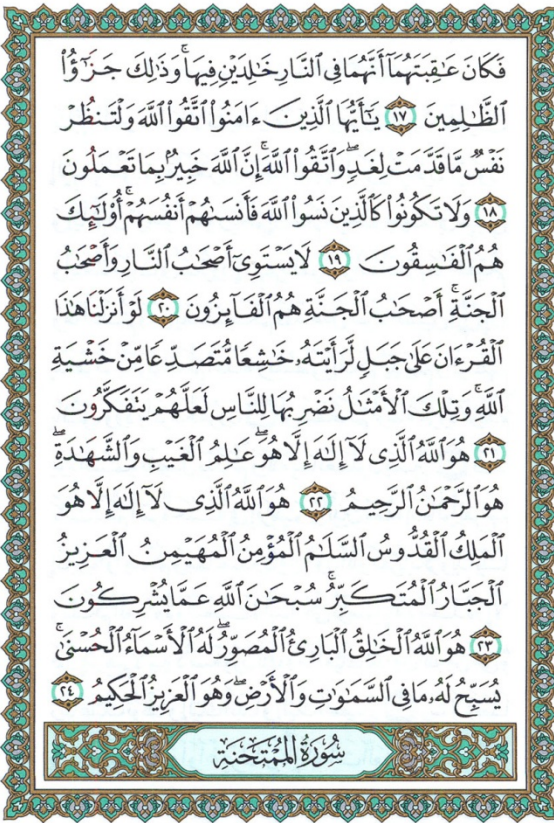 فَكَانَ عَٰقِبَتَهُمَآ أَنَّهُمَا فِى ٱلنَّارِ خَٰلِدَيْنِ فِيهَا ۚ وَذَٰلِكَ جَزَٰٓؤُا۟
ٱلظَّٰلِمِينَ ١٧ يَٰٓأَيُّهَا ٱلَّذِينَ ءَامَنُوا۟ ٱتَّقُوا۟ ٱللَّهَ وَلْتَنظُرْ
نَفْسٌ مَّا قَدَّمَتْ لِغَدٍ ۖ وَٱتَّقُوا۟ ٱللَّهَ ۚ إِنَّ ٱللَّهَ خَبِيرٌۢ بِمَا تَعْمَلُونَ
١٨ وَلَا تَكُونُوا۟ كَٱلَّذِينَ نَسُوا۟ ٱللَّهَ فَأَنسَىٰهُمْ أَنفُسَهُمْ ۚ أُو۟لَٰٓئِكَ
هُمُ ٱلْفَٰسِقُونَ ١٩ لَا يَسْتَوِىٓ أَصْحَٰبُ ٱلنَّارِ وَأَصْحَٰبُ
ٱلْجَنَّةِ ۚ أَصْحَٰبُ ٱلْجَنَّةِ هُمُ ٱلْفَآئِزُونَ ٢٠ لَوْ أَنزَلْنَا هَٰذَا
ٱلْقُرْءَانَ عَلَىٰ جَبَلٍ لَّرَأَيْتَهُۥ خَٰشِعًا مُّتَصَدِّعًا مِّنْ خَشْيَةِ
ٱللَّهِ ۚ وَتِلْكَ ٱلْأَمْثَٰلُ نَضْرِبُهَا لِلنَّاسِ لَعَلَّهُمْ يَتَفَكَّرُونَ
٢١ هُوَ ٱللَّهُ ٱلَّذِى لَآ إِلَٰهَ إِلَّا هُوَ ۖ عَٰلِمُ ٱلْغَيْبِ وَٱلشَّهَٰدَةِ ۖ
هُوَ ٱلرَّحْمَٰنُ ٱلرَّحِيمُ ٢٢ هُوَ ٱللَّهُ ٱلَّذِى لَآ إِلَٰهَ إِلَّا هُوَ
ٱلْمَلِكُ ٱلْقُدُّوسُ ٱلسَّلَٰمُ ٱلْمُؤْمِنُ ٱلْمُهَيْمِنُ ٱلْعَزِيزُ
ٱلْجَبَّارُ ٱلْمُتَكَبِّرُ ۚ سُبْحَٰنَ ٱللَّهِ عَمَّا يُشْرِكُونَ
٢٣ هُوَ ٱللَّهُ ٱلْخَٰلِقُ ٱلْبَارِئُ ٱلْمُصَوِّرُ ۖ لَهُ ٱلْأَسْمَآءُ ٱلْحُسْنَىٰ ۚ
يُسَبِّحُ لَهُۥ مَا فِى ٱلسَّمَٰوَٰتِ وَٱلْأَرْضِ ۖ وَهُوَ ٱلْعَزِيزُ ٱلْحَكِيمُ ٢٤
سُورَةُ المُمْتَحنَة